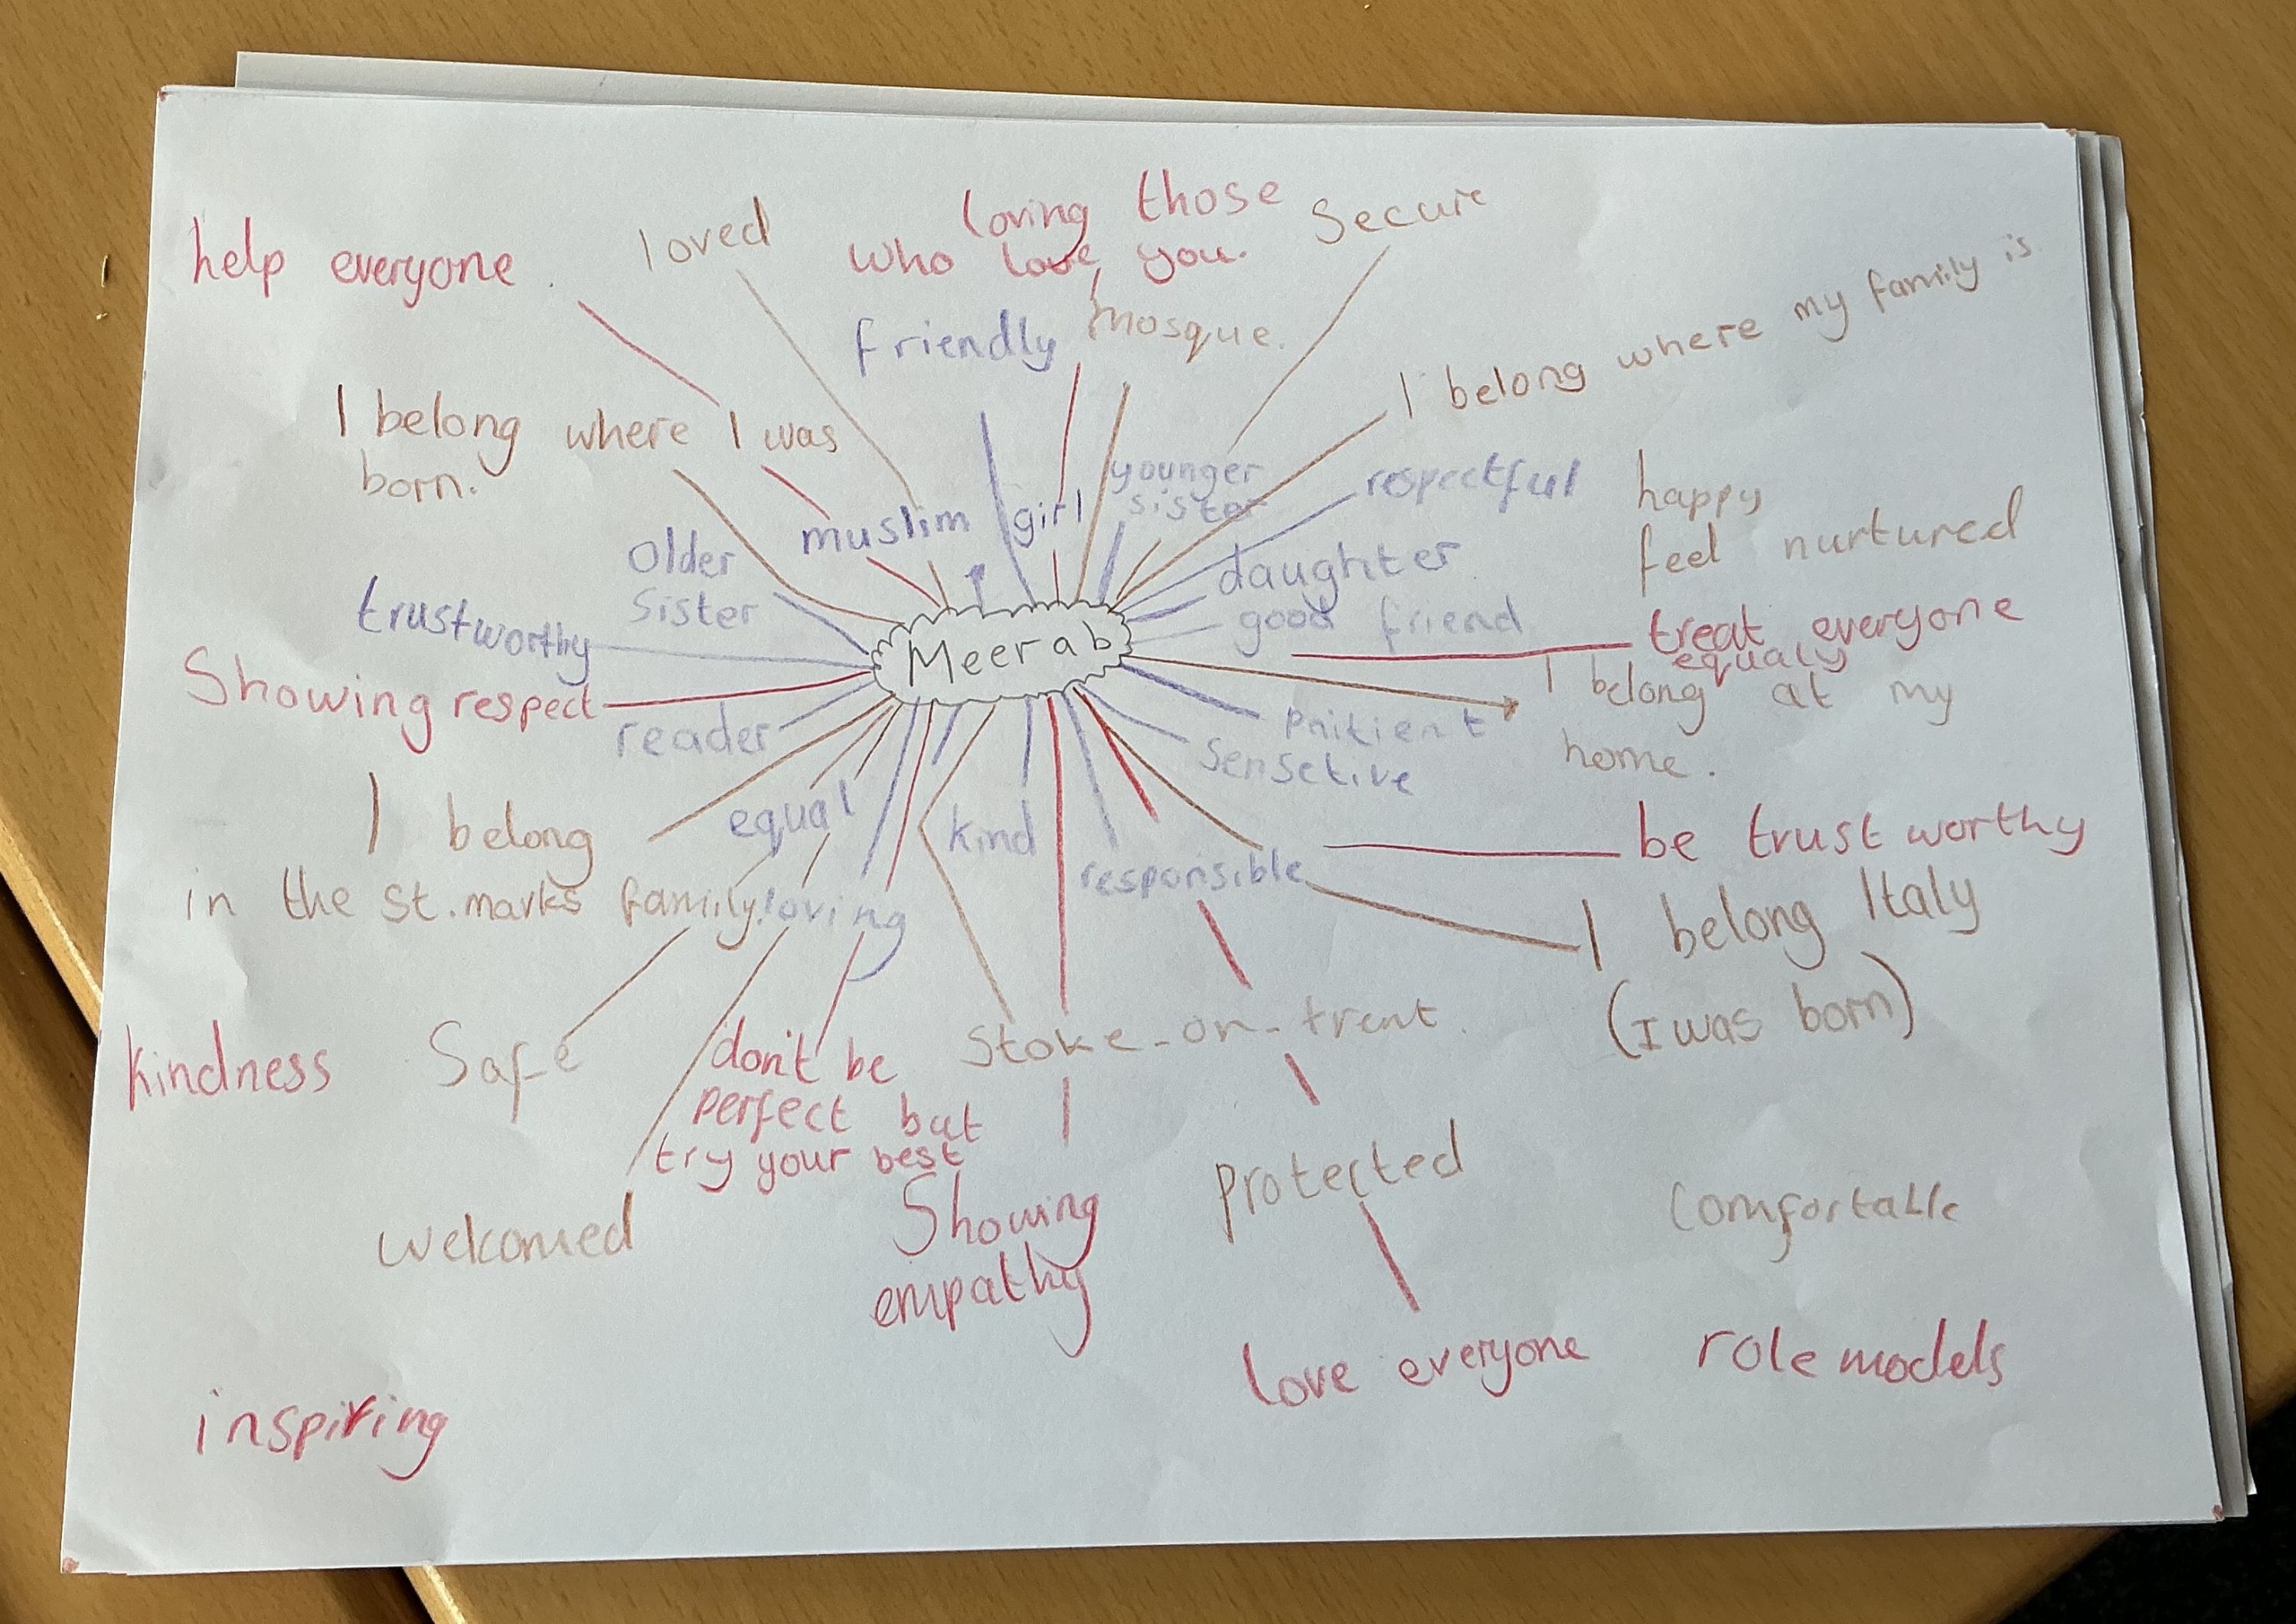 help everyone.
loved
loving those
who love you.
Secure
friendly
mosque.
I belong where my family is
I belong where I was
born.
younger
sister
respectful
happy
feel nurtured
muslim
girl
Older
Sister
daughter
good friend
trustworthy
treat everyone
equaly
Meerab
Showing respect
reader
I belong at my
home.
Paitient
Sensetive
I belong
in the st.marks family.
equal
kind
loving
responsible
be trust worthy
I belong Italy
(I was born)
kindness
Safe
don't be
perfect but
try your best
Stoke-on-trent.
welcomed
Showing
empathy
protected
Comfortable
love everyone
role models
inspiring